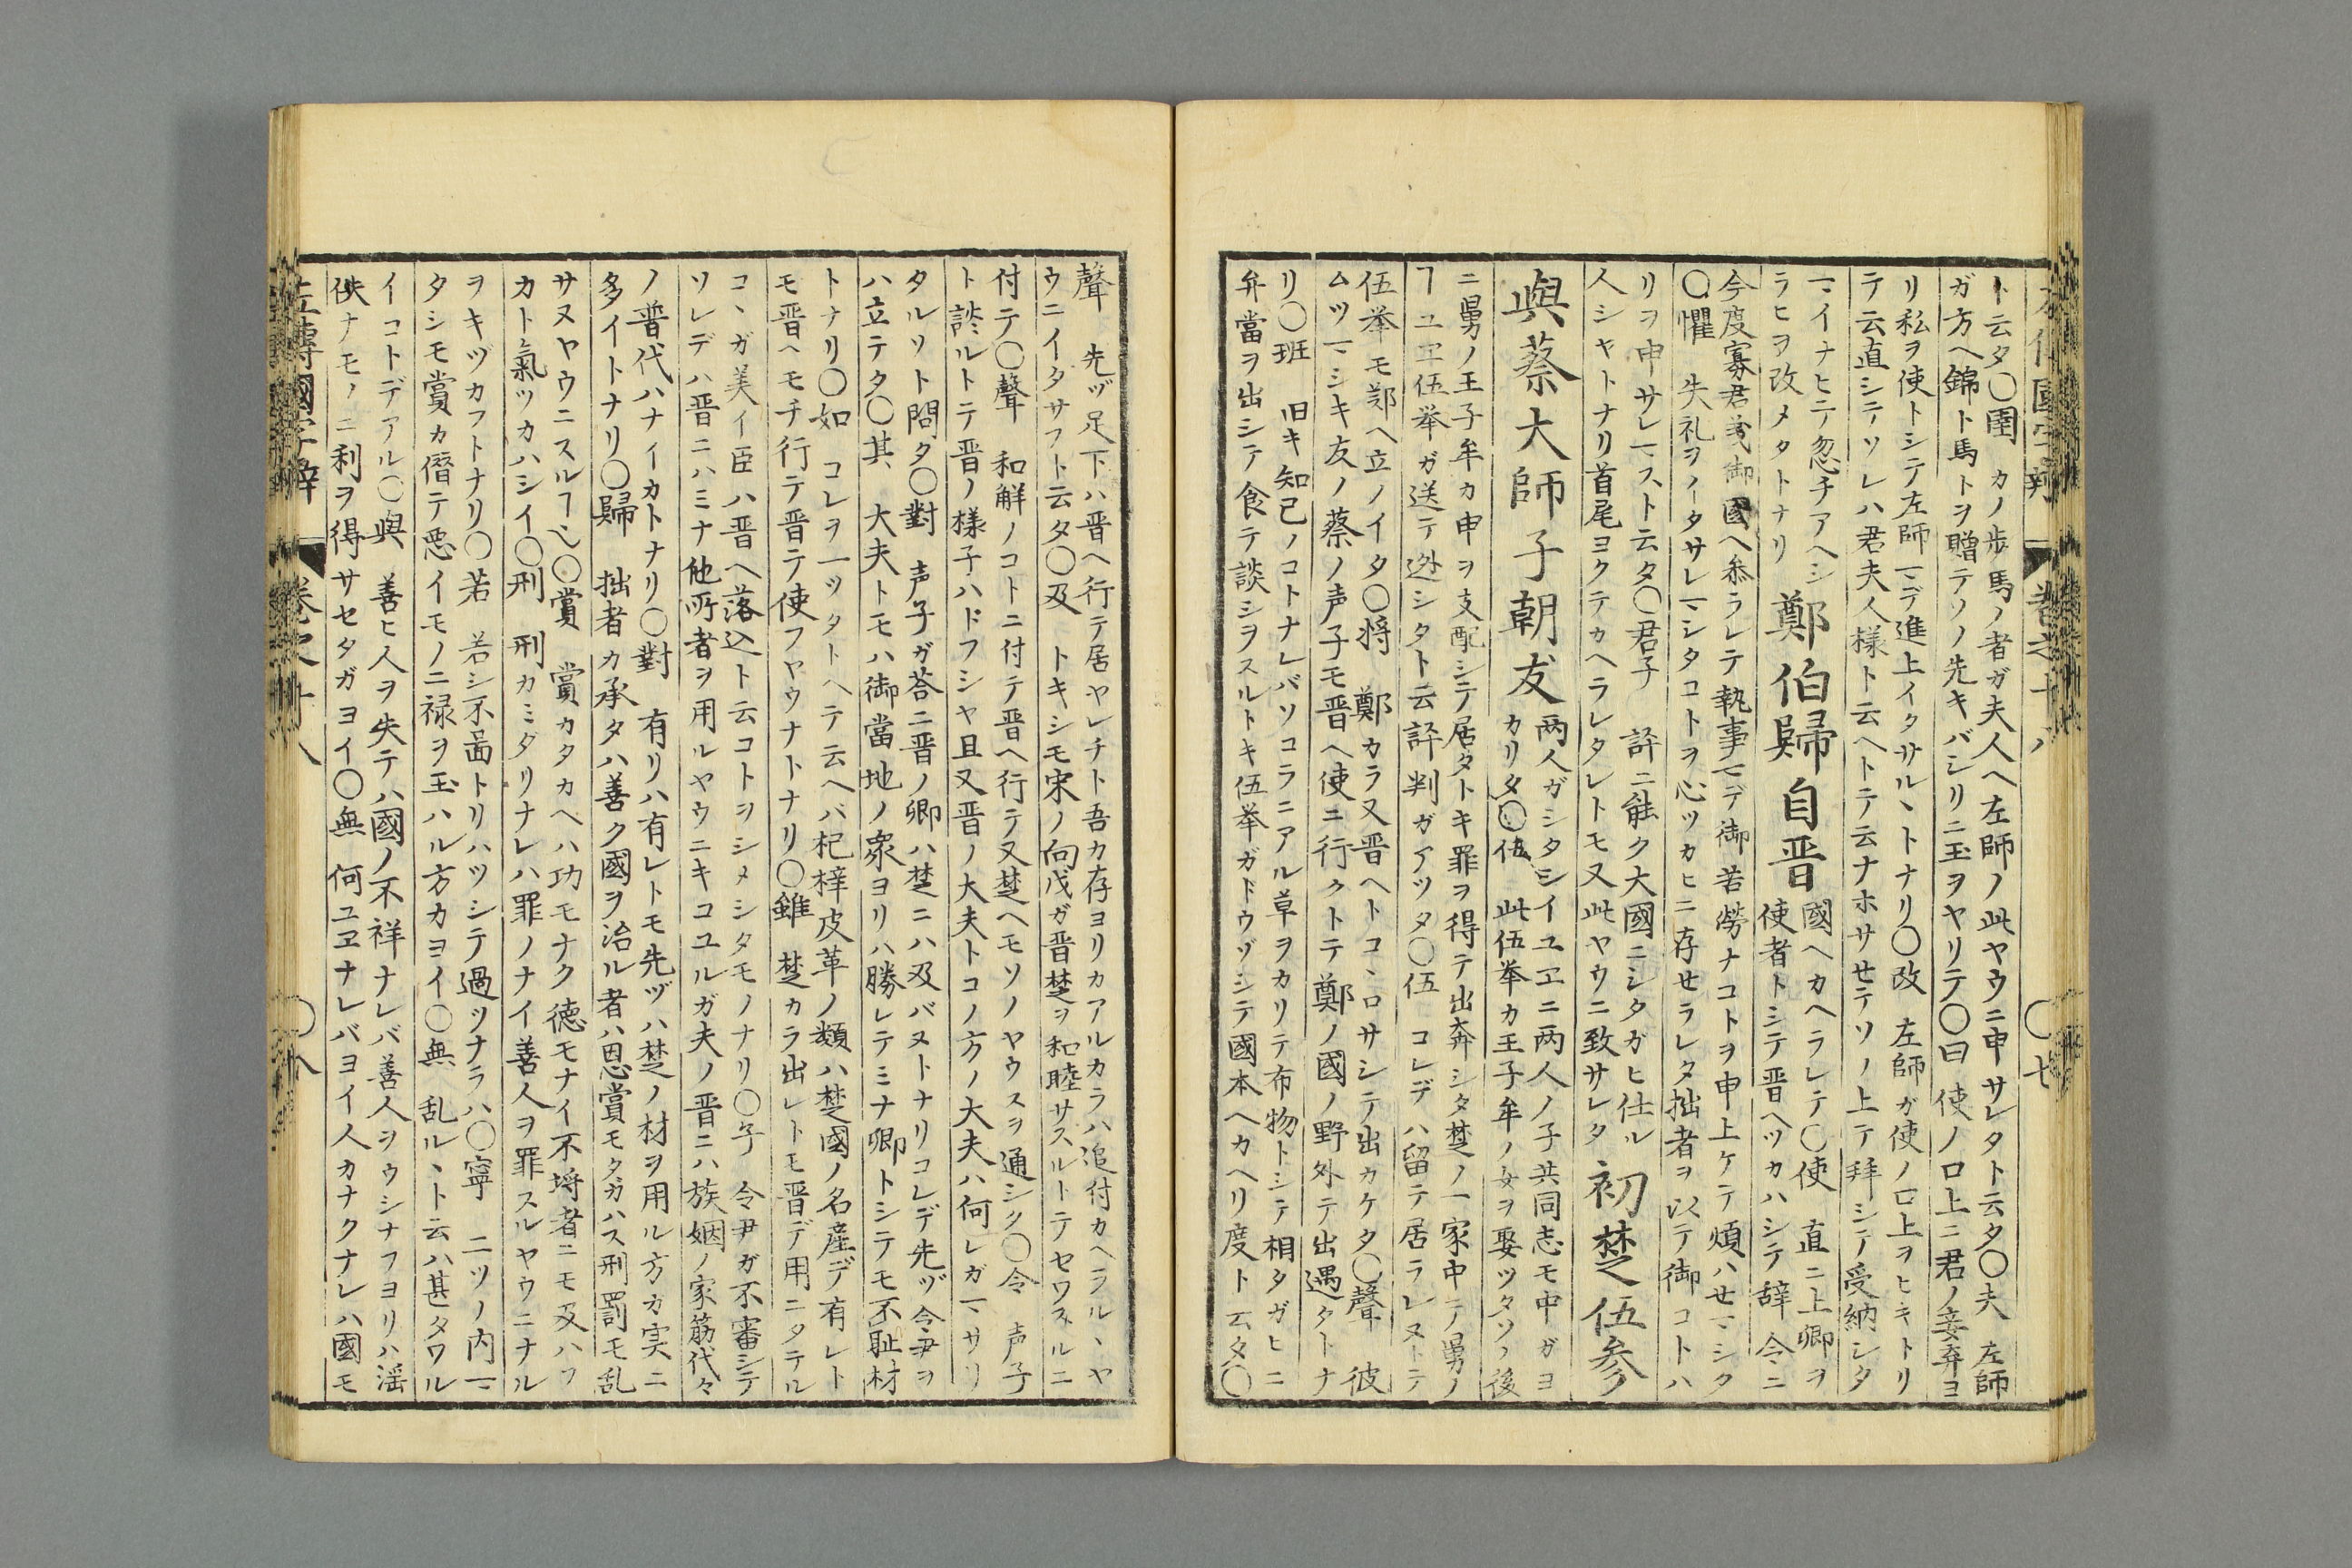 ト云タ〇圉 カノ歩馬ノ者ガ夫人ヘ左師ノ此ヤウニ申サレタト云タ〇夫 左師
ガ方ヘ錦ト馬トヲ贈テソノ先キバシリニ玉ヲヤリテ〇曰 使ノ口上ニ君ノ妾弃ヨ
リ私ヲ使トシテ左師マデ進上イタサルヽトナリ〇改 左師ガ使ノ口上ヲヒキトリ
テ云直シテソレハ君夫人様ト云ヘトテ云ナホサセテソノ上テ拜シテ受納シタ
マイナヒニテ忽チアヘシ
ラヒヲ改メタトナリ
鄭伯歸自晋
國ヘカヘラレテ〇使 直ニ上卿ヲ
使者トシテ晋ヘツカハシテ辞 今ニ
今度寡君義御國ヘ叅ラレテ執事マデ御苦勞ナコトヲ申上ケテ煩ハせマシタ
〇懼 失礼ヲイタサレマシタコトヲ心ツカヒニ存せラレタ拙者ヲ以テ御コトハ
リヲ申サレマスト云タ〇君子 評ニ能ク大國ニシタガヒ仕ル
人シヤトナリ首尾ヨクテカヘラレタレトモ又此ヤウニ致サレタ
初楚伍参
與蔡大師子朝友
两人ガシタシイユヱニ两人ノ子共同志モ中ガヨ
カリタ〇伍 此伍挙カ王子牟ノ女ヲ娶ツタソノ後
ニ舅ノ王子牟カ申ヲ支配シテ居タトキ罪ヲ得テ出奔シタ楚ノ一家中テ舅ノ
ヿユヱ伍挙ガ送テ迯シタト云評判ガアツタ〇伍 コレデハ留テ居ラレヌトテ
伍挙モ鄭ヘ立ノイタ〇將 鄭カラ又晋ヘトコヽロサシテ出カケタ〇聲 彼
ムツマシキ友ノ蔡ノ声子モ晋ヘ使ニ行クトテ鄭ノ國ノ野外テ出遇タトナ
リ〇班 旧キ知己ノコトナレバソコラニアル草ヲカリテ布物トシテ相タガヒニ
弁當ヲ出シテ食テ談シヲスルトキ伍挙ガドウゾシテ國本ヘカヘリ度ト云タ〇
聲 先ヅ足下ハ晋ヘ行テ居ヤレチト吾カ存ヨリカアルカラハ追付カヘラルヽヤ
ウニイタサフト云タ〇及 トキシモ宋ノ向戌ガ晋楚ヲ和睦サスルトテセワスルニ
付テ〇聲 和觧ノコトニ付テ晋ヘ行テ又楚ヘモソノヤウスヲ通シタ〇令 声子
ト談ルトテ晋ノ様子ハドフシヤ且又晋ノ大夫トコノ方ノ大夫ハ何レガマサリ
タルソト問タ〇對 声子ガ荅ニ晋ノ卿ハ楚ニハ及バヌトナリコレデ先ヅ令尹ヲ
ハ立テタ〇其 大夫トモハ御當地ノ衆ヨリハ勝レテミナ卿トシテモ不耻材
トナリ〇如 コレヲ一ツタトヘテ云ヘバ杞梓皮革ノ類ハ楚國ノ名産デ有レト
モ晋ヘモチ行テ晋テ使フヤウナトナリ〇雖 楚カラ出レトモ晋デ用ニタテル
コヽガ美イ臣ハ晋ヘ落込ト云コトヲシメシタモノナリ〇子 令尹ガ不審シテ
ソレデハ晋ニハミナ他所者ヲ用ルヤウニキコユルガ夫ノ晋ニハ族姻ノ家筋代々
ノ晋代ハナイカトナリ〇對 有リハ有レトモ先ヅハ楚ノ材ヲ用ル方カ実ニ
多イトナリ〇歸 拙者カ承タハ善ク國ヲ治ル者ハ恩賞モタガハス刑罰モ乱
サヌヤウニスルヿ也〇賞 賞カタカヘハ功モナク徳モナイ不埒者ニモ及ハフ
カト氣ツカハシイ〇刑 刑カミダリナレハ罪ノナイ善人ヲ罪スルヤウニナル
ヲキヅカフトナリ〇若 若シ不啚トリハツシテ過ツナラハ〇寧 二ツノ内マ
タシモ賞カ僭テ悪イモノニ禄ヲ玉ハル方カヨイ〇無 乱ルヽト云ハ甚タワル
イコトデアル〇與 善ヒ人ヲ失テハ國ノ不祥ナレバ善人ヲウシナフヨリハ滛
佚ナモノニ利ヲ得サセタガヨイ〇無 何ユヱナレバヨイ人カナクナレハ國モ
左傳國字辯 卷之十八 〇八